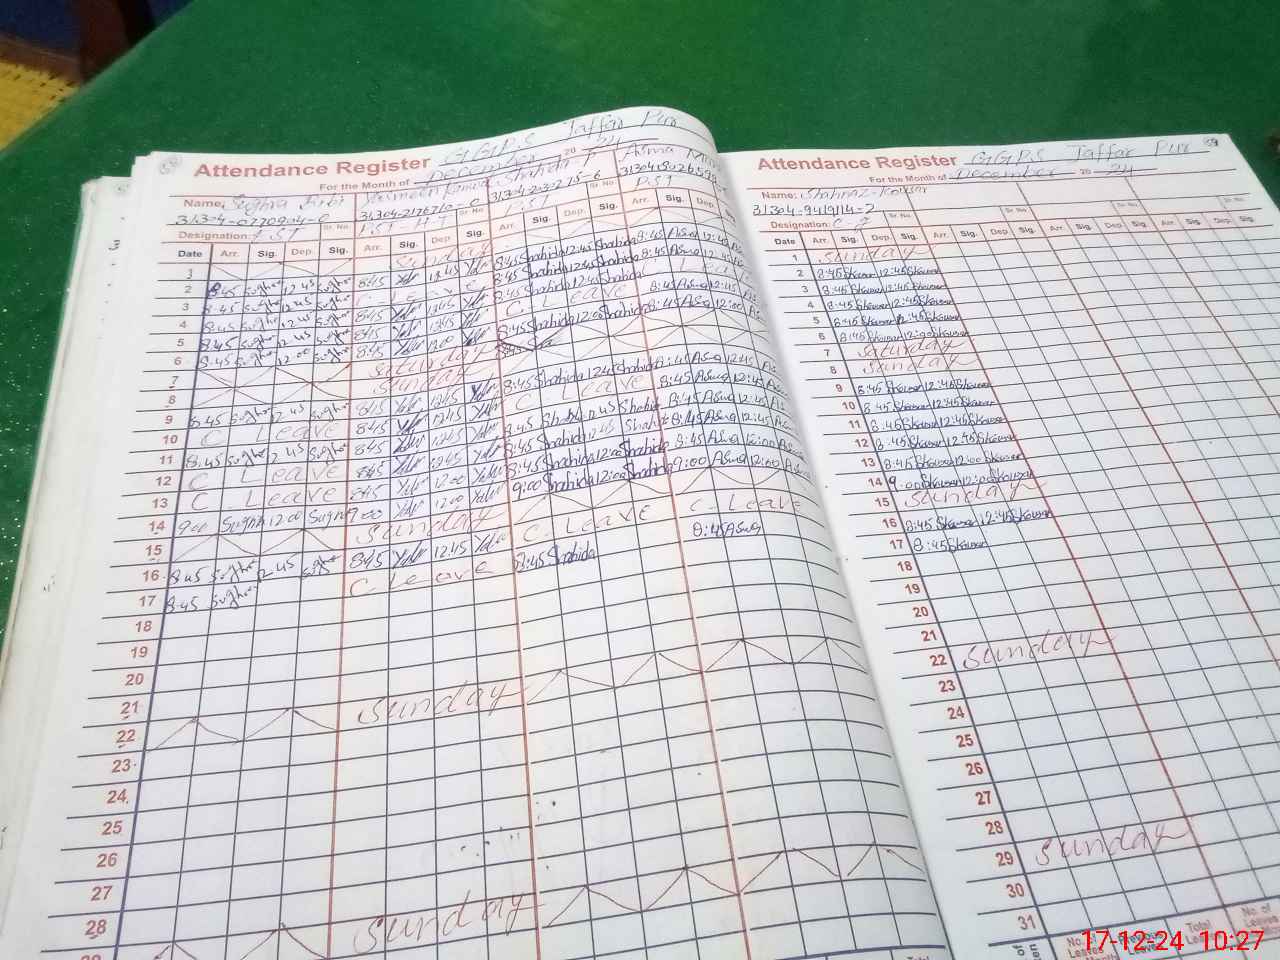 Attendance Register GGPS Jaffar Pur
For the Month of December 2024
Name: Sughra Bibi Yasmeen Kanwal Shahida Asma
31304-0770904-0 31304-2176710-0 31304-2032715-6
Sr No. Sr No. Sr No.
Designation: PST PST PST PST
Date Arr. Sig. Dep. Sig. Arr. Sig. Dep. Sig. Arr. Sig. Dep. Sig. Arr. Sig. Dep.
1 Sunday
2 8:45 Sughra 12:45 Sughra 8:45 12:45 8:45 Shahida 12:45 Shahida 8:45 Asma 12:45
3 8:45 Sughra 12:45 Sughra C. Leave 8:45 Shahida 12:45 Shahida 8:45 Asma 12:45
4 8:45 Sughra 12:45 Sughra 8:45 12:45 8:45 Shahida 12:45 Shahida C Leave
5 8:45 Sughra 12:45 Sughra 8:45 12:45 C Leave 8:45 Asma 12:45
6 8:45 Sughra 12:00 Sughra 8:45 12:00 8:45 Shahida 12:00 Shahida 8:45 Asma 12:00
7 Saturday
8 Sunday
9 8:45 Sughra 12:45 Sughra 8:45 12:45 8:45 Shahida 12:45 Shahida 8:45 Asma 12:45
10 C Leave 8:45 12:45 C Leave 8:45 Asma 12:45
11 8:45 Sughra 12:45 Sughra 8:45 12:45 8:45 Shahida 12:45 Shahida 8:45 Asma 12:45
12 C Leave 8:45 12:45 8:45 Shahida 12:45 Shahida 8:45 Asma 12:45
13 C Leave 8:45 12:00 8:45 Shahida 12:00 Shahida 8:45 Asma 12:00
14 9:00 Sughra 12:00 Sughra 9:00 12:00 9:00 Shahida 12:00 Shahida 9:00 Asma 12:00
15 Sunday
16 8:45 Sughra 12:45 Sughra 8:45 12:45 C. Leave C. Leave
17 8:45 Sughra C Leave 8:45 Shahida 8:45 Asma
18
19
20
21
22 Sunday
23
24
25
26
27
28
Sunday
Attendance Register GGPS Jaffar Pur
For the Month of December 2024
Name: Shahnaz Kousar
31304-9419114-2
Sr No. Sr No. Sr No.
Designation:
Date Arr. Sig. Dep. Sig. Arr. Sig. Dep. Sig. Arr. Sig. Dep. Sig. Arr. Sig.
1 Sunday
2 8:45 Skousar 12:45 Skousar
3 8:45 Skousar 12:45 Skousar
4 8:45 Skousar 12:45 Skousar
5 8:45 Skousar 12:45 Skousar
6 8:45 Skousar 12:00 Skousar
7 Saturday
8 Sunday
9 8:45 Skousar 12:45 Skousar
10 8:45 Skousar 12:45 Skousar
11 8:45 Skousar 12:45 Skousar
12 8:45 Skousar 12:45 Skousar
13 8:45 Skousar 12:00 Skousar
14 9:00 Skousar 12:00 Skousar
15 Sunday
16 8:45 Skousar 12:45 Skousar
17 8:45 Skousar
18
19
20
21
22 Sunday
23
24
25
26
27
28
29 Sunday
30
31
No. of Leaves Previous Leave Total No. of Leaves
17-12-24 10:27